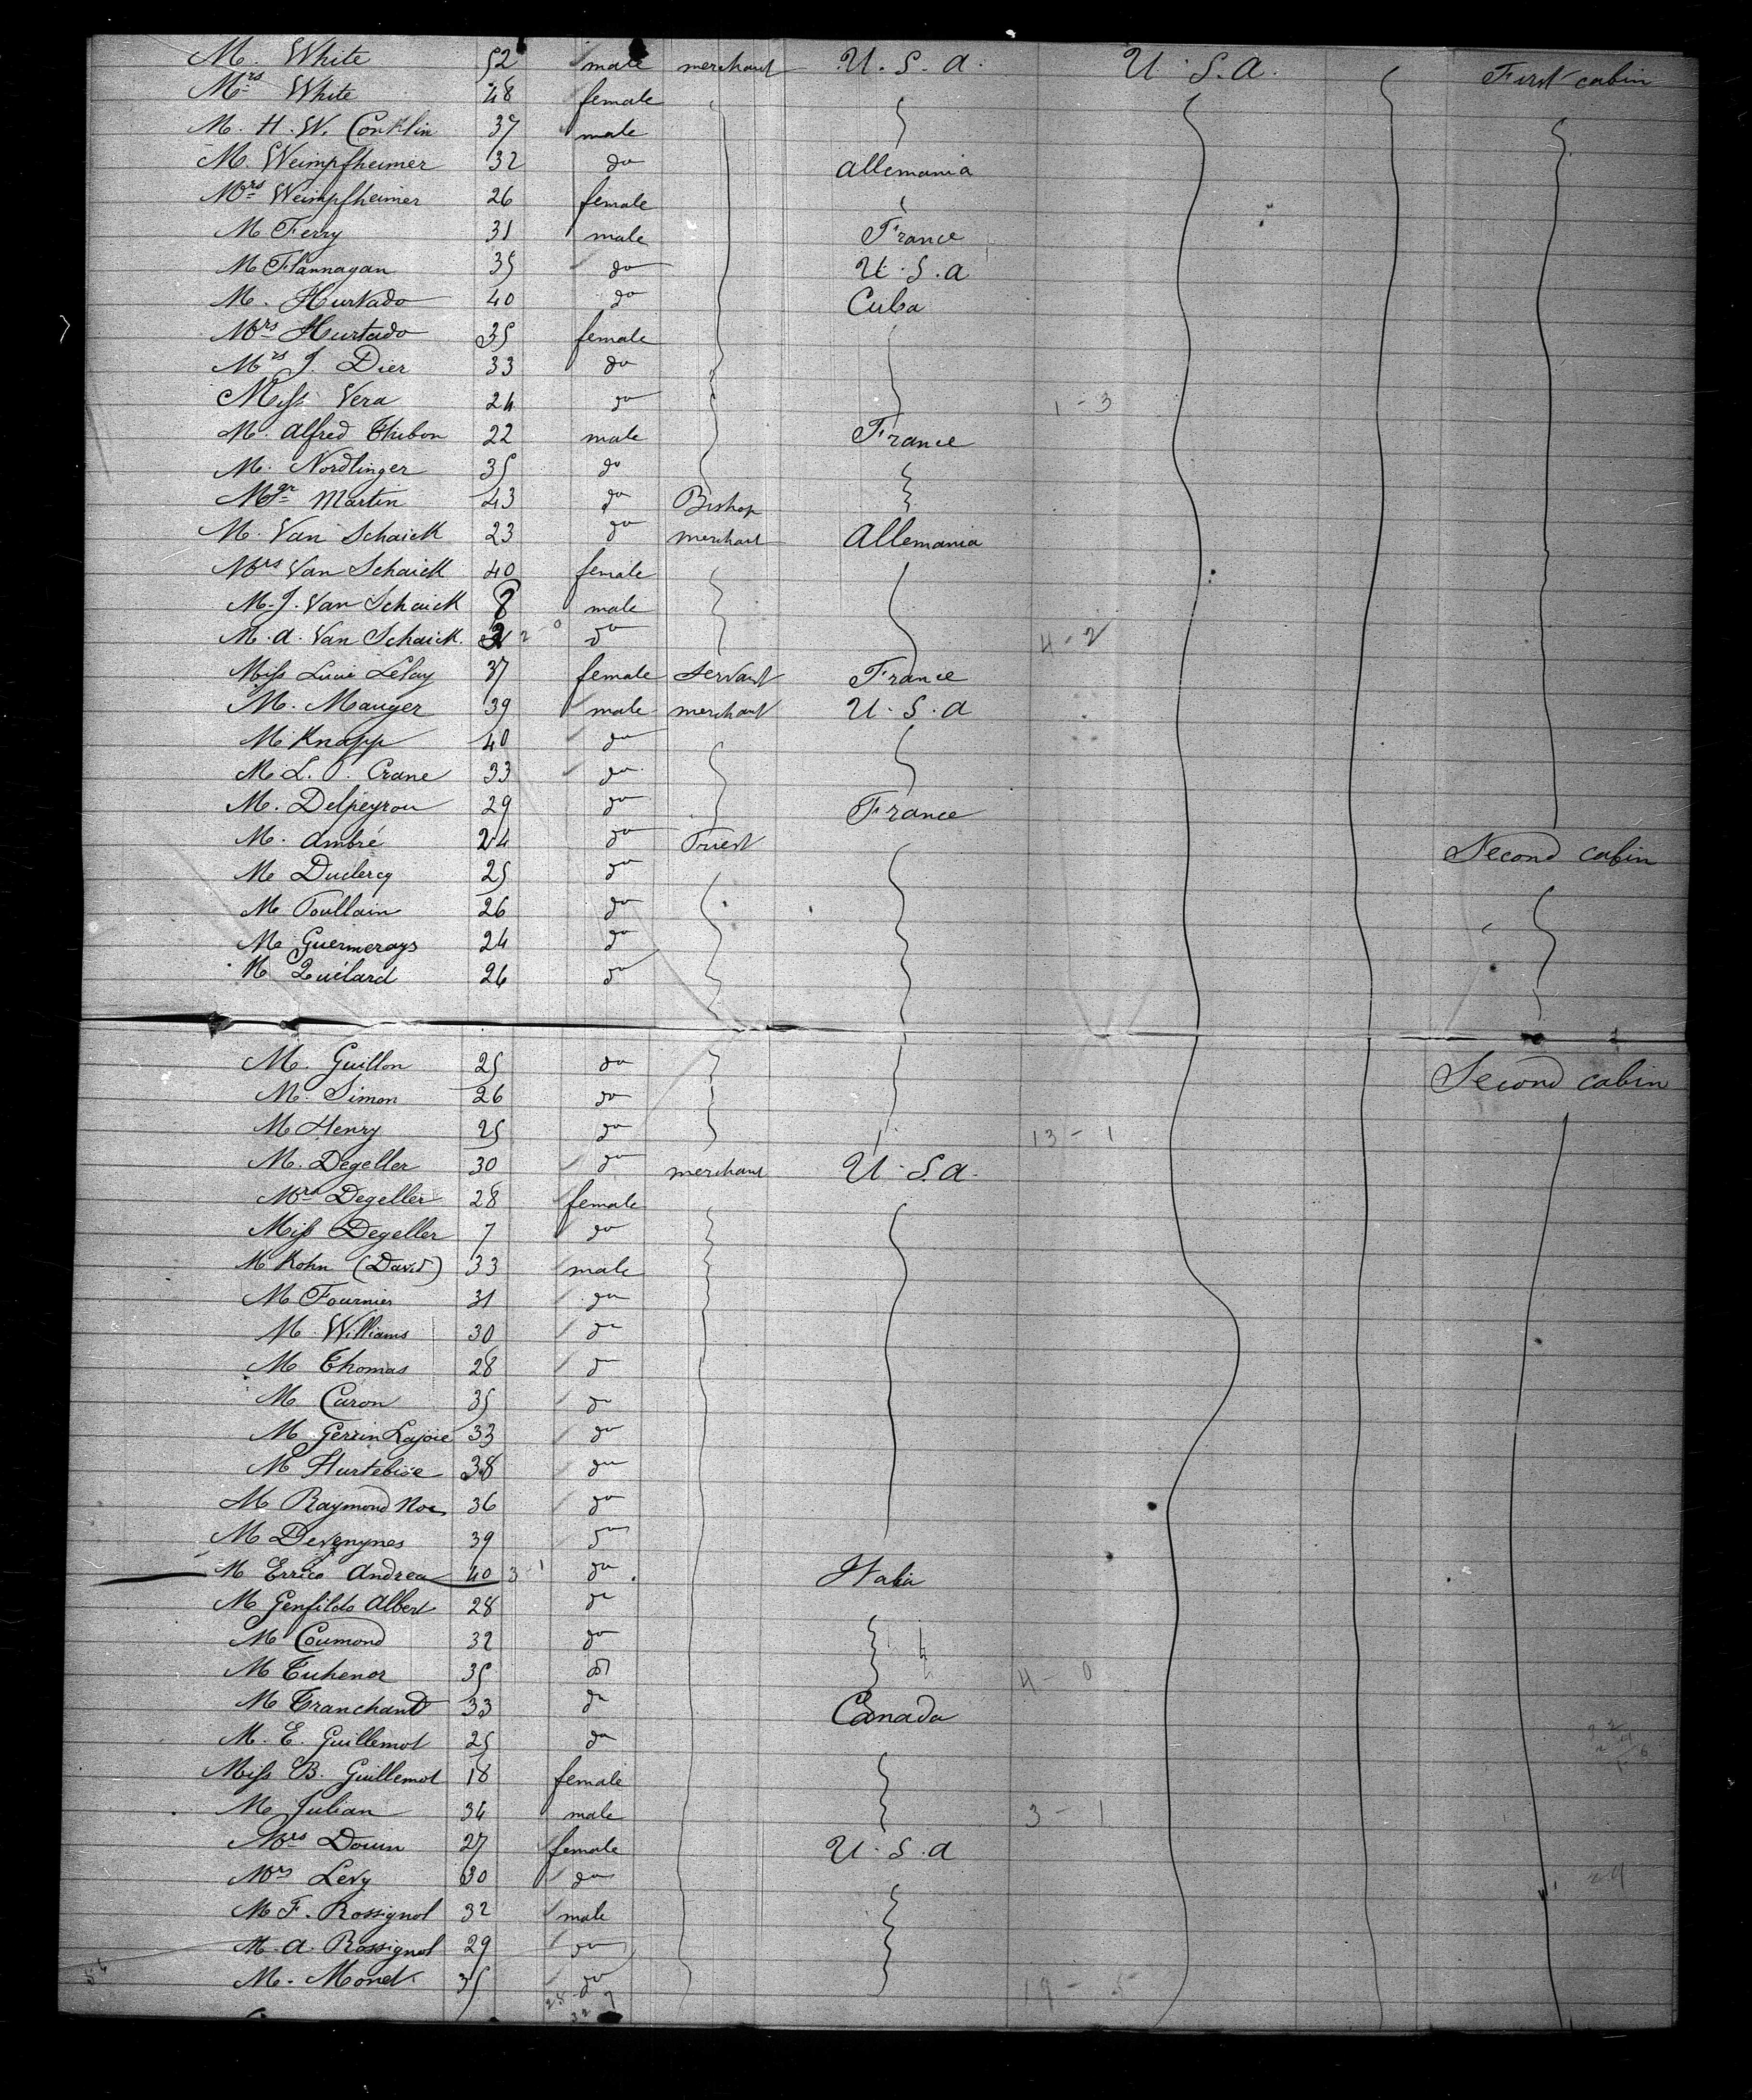 M. White 52 male merchant U.S.A. U.S.A. First cabin
Mrs White 48 female
M. H. W. Conklin 37 male
M. Weimpfheimer 32 do Allemania
Mrs Weimpfheimer 26 female
M Ferry 31 male France
M Flannagan 35 do U.S.A
M. Hurtado 40 do Cuba
Mrs Hurtado 35 female
Mrs J. Dier 33 do
Miss Vera 24 do 1-3
M. Alfred Thibon 22 male France
M. Nordlinger 35 do
Mgr Martin 43 do Bishop
M. Van Schaick 23 do merchant Allemania
Mrs Van Schaick 40 female
M. J. Van Schaick 8 male
M. A. Van Schaick do 4-2
Miss Lucie Lelay 37 female servant France
M. Mauger 39 male merchant U.S.A
M Knapp 40 do
M L. P. Crane 33 do
M. Delpeyrou 29 do France
M. Ambré 24 do Priest Second cabin
M Duclercq 25 do
M Poullain 26 do
M Guermerays 24 do
M Quélard 26 do
M. Guillon 25 do Second cabin
M. Simon 26 do
M Henry 25 do 13-1
M. Degeller 30 do merchant U.S.A.
Mrs Degeller 28 female
Miss Degeller 7 do
M Kohn (David) 33 male
M Fournier 31 do
M. Williams 30 do
M Thomas 28 do
M Caron 35 do
M Gerrin Lajoie 33 do
M Hurtebise 38 do
M Raymond Noe 36 do
M Devenynes 39 do
M Errico Andrea 40 3-1 do Italia
M Genfildo Albert 28 do
M Coumond 32 do
M Tuhenor 35 do 4 0
M Tranchand 33 do Canada
M. E. Guillemot 25 do
Miss B. Guillemot 18 female
M Julian 34 male 3-1
Mrs Doum 27 female U.S.A
Mrs Levy 30 do
M F. Rossignol 32 male
M. A. Rossignol 29 do
M. Monet 35 do 19-5